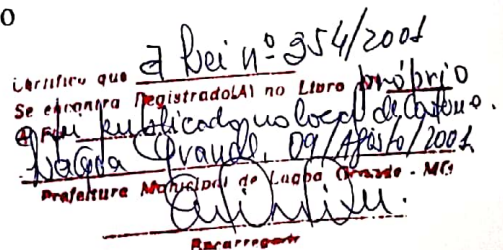 o
Certifico que a Lei nº 354/2001
Se encontra Registrado(A) no Livro próprio
e Foi publicado no local de Costume.
Lagoa Grande, 09/Agosto/2001
Prefeitura Municipal de Lagoa Grande - MG
Encarregado